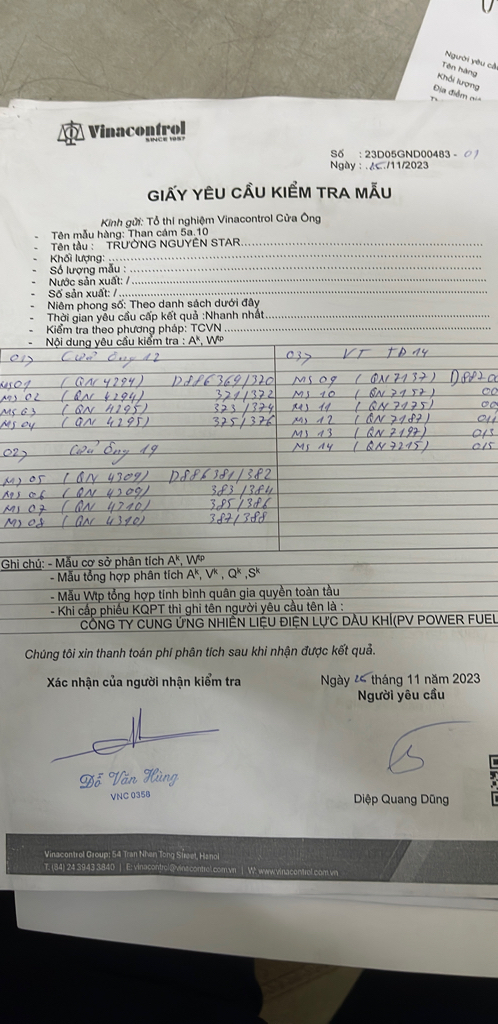 Người yêu cầ
Tên hàng
Khối lượng
Địa điểm
Vinacontrol
SINCE 1957
Số : 23D05GND00483 - 01
Ngày : 25/11/2023
GIẤY YÊU CẦU KIỂM TRA MẪU
Kính gửi: Tổ thí nghiệm Vinacontrol Cửa Ông
- Tên mẫu hàng: Than cám 5a.10
- Tên tàu : TRƯỜNG NGUYÊN STAR
- Khối lượng:
- Số lượng mẫu :
- Nước sản xuất: /
- Số sản xuất: /
- Niêm phong số: Theo danh sách dưới đây
- Thời gian yêu cầu cấp kết quả :Nhanh nhất
- Kiểm tra theo phương pháp: TCVN
- Nội dung yêu cầu kiểm tra : Aᵏ, Wᵗᵖ
01> Cửa Ông 12
MS01 ( QN 4294) D886369/370
MS 02 ( QN 4294) 371/372
MS 03 ( QN 4295) 373/374
MS 04 ( QN 4295) 375/376
02> Cửa Ông 19
MS 05 ( QN 4309) D886381/382
MS 06 ( QN 4309) 383/384
MS 07 ( QN 4310) 385/386
MS 08 ( QN 4310) 387/388
03> VT TD 14
MS 09 ( QN 7137) D88200
MS 10 ( QN 7157)
MS 11 ( QN 7175)
MS 12 ( QN 7187) 011
MS 13 ( QN 7197) 013
MS 14 ( QN 7215) 015
Ghi chú: - Mẫu cơ sở phân tích Aᵏ, Wᵗᵖ
- Mẫu tổng hợp phân tích Aᵏ, Vᵏ , Qᵏ ,Sᵏ
- Mẫu Wtp tổng hợp tính bình quân gia quyền toàn tàu
- Khi cấp phiếu KQPT thì ghi tên người yêu cầu tên là :
CÔNG TY CUNG ỨNG NHIÊN LIỆU ĐIỆN LỰC DẦU KHÍ(PV POWER FUEL
Chúng tôi xin thanh toán phí phân tích sau khi nhận được kết quả.
Xác nhận của người nhận kiểm tra
Ngày 25 tháng 11 năm 2023
Người yêu cầu
Đỗ Văn Hùng
VNC 0356
Diệp Quang Dũng
Vinacontrol Group: 54 Tran Nhan Tong Street, Hanoi
T: (84) 24 3943 3840 | E: vinacontrol@vinacontrol.com.vn | W: www.vinacontrol.com.vn